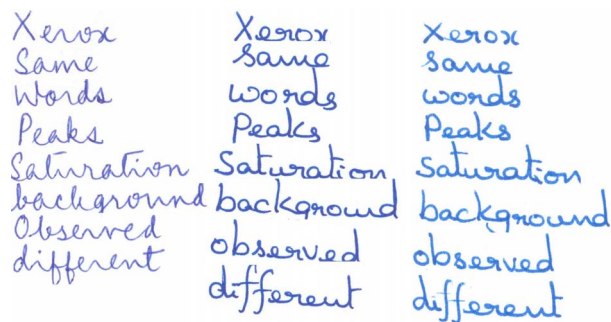 Xerox
Same
Words
Peaks
Saturation
background
Observed
different
Xerox
same
words
Peaks
Saturation
background
observed
different
Xerox
same
words
Peaks
saturation
background
observed
different